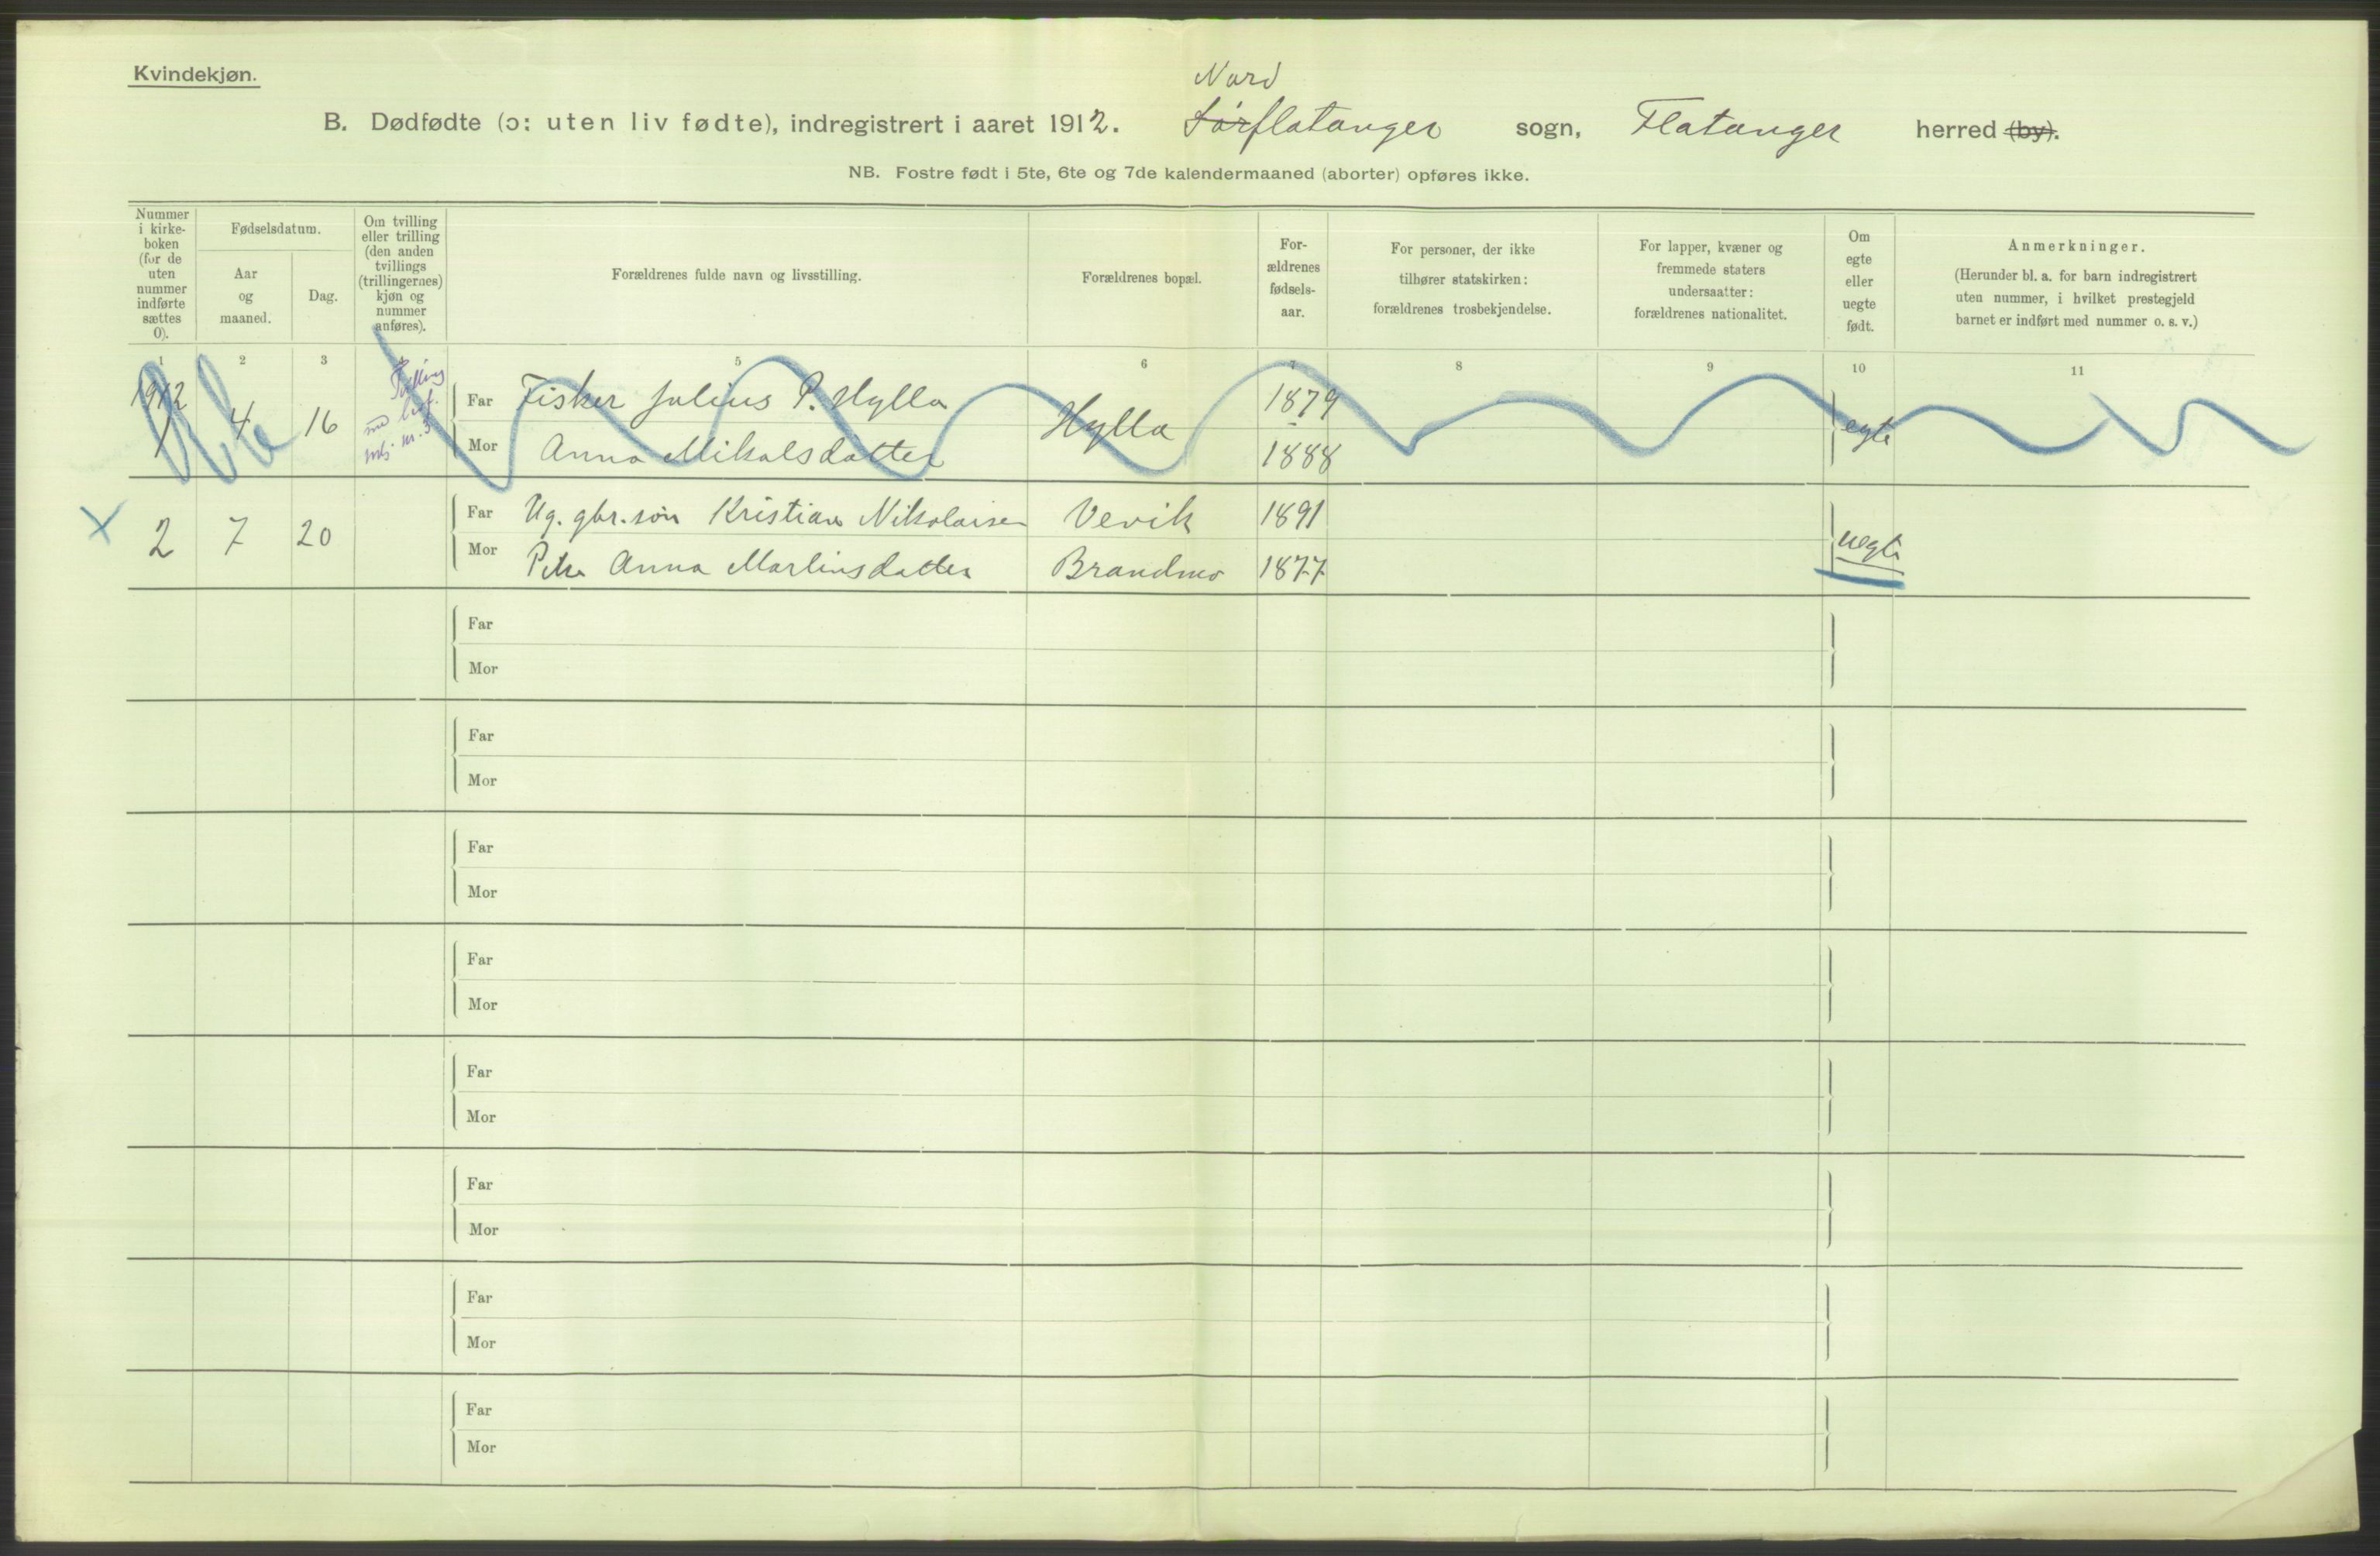 Kvindekjøn.
Nord
B. Dødfødte (ɔ: uten liv fødte), indregistrert i aaret 1912. Sørflatanger sogn, Flatanger herred (by).
NB. Fostre født i 5te, 6te og 7de kalendermaaned (aborter) opføres ikke.
Nummer
i kirke-
boken
(for de
uten
nummer
indførte
sættes
0).
Fødselsdatum.
Aar
og
maaned.
Dag.
Om tvilling
eller trilling
(den anden
tvillings
(trillingernes)
kjøn og
nummer
anføres).
Forældrenes fulde navn og livsstilling.
Forældrenes bopæl.
For-
ældrenes
fødsels-
aar.
For personer, der ikke
tilhører statskirken:
forældrenes trosbekjendelse.
For lapper, kvæner og
fremmede staters
undersaatter:
forældrenes nationalitet.
Om
egte
eller
uegte
født.
Anmerkninger.
(Herunder bl. a. for barn indregistrert
uten nummer, i hvilket prestegjeld
barnet er indført med nummer o. s. v.)
1 2 3 5 6 7 8 9 10 11
1912
1 4 16
Tvilling
nr. 3
Far Fisker Julius P. Hylla Hylla 1879 egte
Mor Anna Mikalsdatter 1888
2 7 20
Far Ug. gbr.søn Kristian Nikolaisen Vevik 1891 uegte
Mor Petra Anna Martinsdatter Brandmo 1877
Far
Mor
Far
Mor
Far
Mor
Far
Mor
Far
Mor
Far
Mor
Far
Mor
Far
Mor